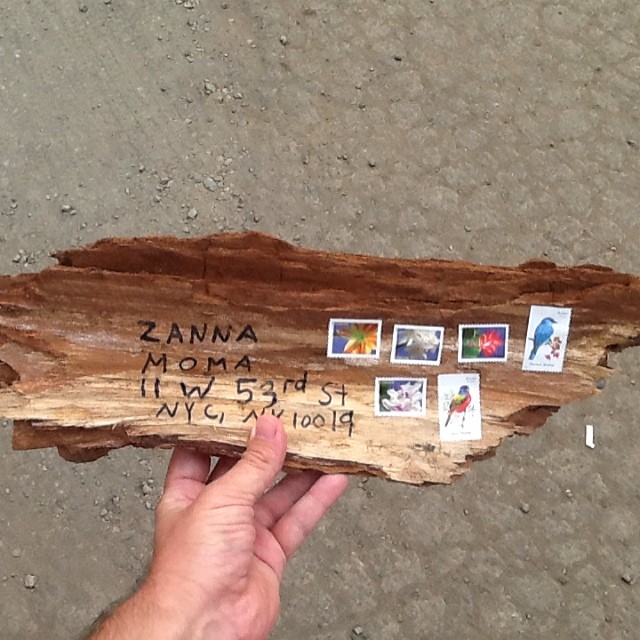 ZANNA
MOMA
11 W 53rd St
NYC, NY 10019